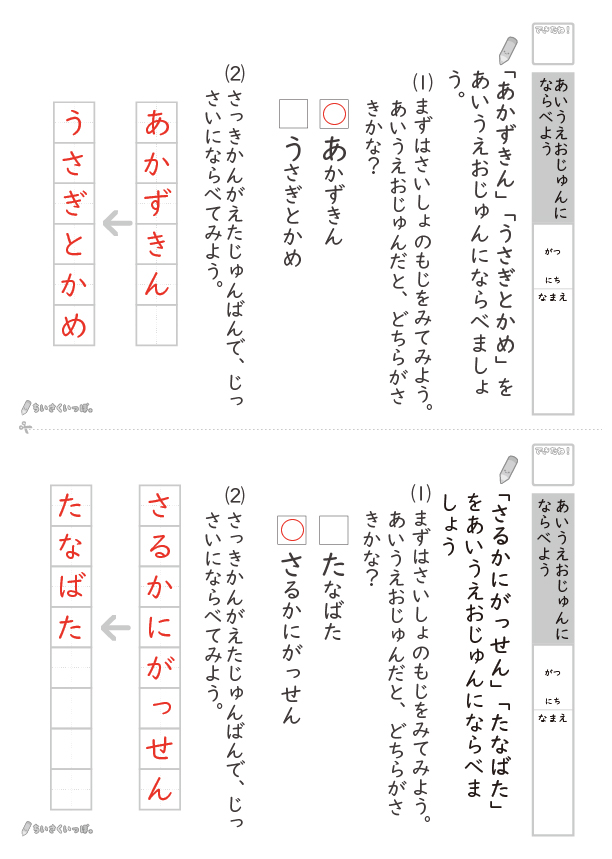 できたね！
あいうえおじゅんに
ならべよう
がつ
にち
なまえ
「あかずきん」「うさぎとかめ」を
あいうえおじゅんにならべましょ
う。
(1) まずはさいしょのもじをみてみよう。
あいうえおじゅんだと、どちらがさ
きかな？
あかずきん
うさぎとかめ
(2) さっきかんがえたじゅんばんで、じっ
さいにならべてみよう。
あかずきん
うさぎとかめ
ちいさくいっぽ。
できたね！
あいうえおじゅんに
ならべよう
がつ
にち
なまえ
「さるかにがっせん」「たなばた」
をあいうえおじゅんにならべま
しょう
(1) まずはさいしょのもじをみてみよう。
あいうえおじゅんだと、どちらがさ
きかな？
たなばた
さるかにがっせん
(2) さっきかんがえたじゅんばんで、じっ
さいにならべてみよう。
さるかにがっせん
たなばた
ちいさくいっぽ。